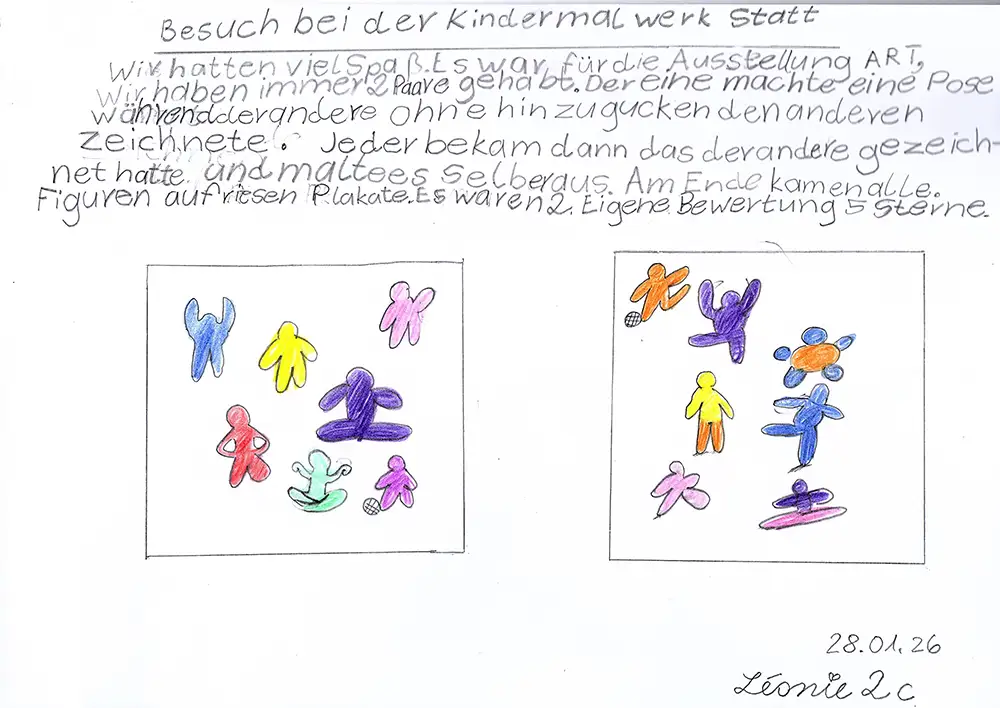 Besuch bei der Kindermal werk Statt
Wir hatten viel Spaß. Es war für die Ausstellung ART,
Wir haben immer 2 Paare gehabt. Der eine machte eine Pose
während der andere ohne hin zu gucken den anderen
zeichnete. Jeder bekam dann das der andere gezeich-
net hatte und malte es selber aus. Am Ende kamen alle.
Figuren auf riesen Plakate. Es waren 2. Eigene Bewertung 5 Sterne.
28.01.26
Léonie 2c